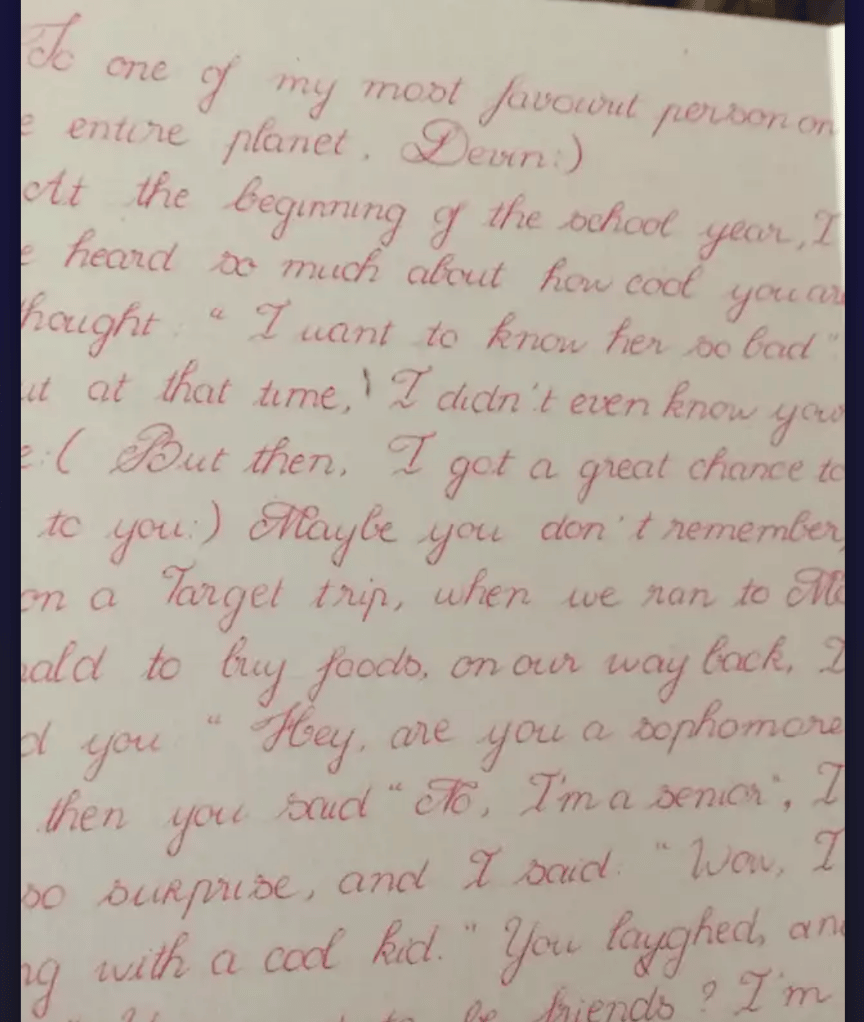 To one of my most favourit person on
e entire planet. Devin:)
At the beginning of the school year, I
e heard so much about how cool you ar
hought : " I want to know her so bad "
ut at that time, I didn't even know you
e:( But then, I got a great chance to
to you:) Maybe you don't remember,
on a Target trip, when we ran to Mc
nald to buy foods, on our way back, I
d you " Hey, are you a sophomore
then you said " No, I'm a senior", I
so surprise, and I said: " Wow, I
ng with a cool kid. " You layghed, an
to be friends ? I'm